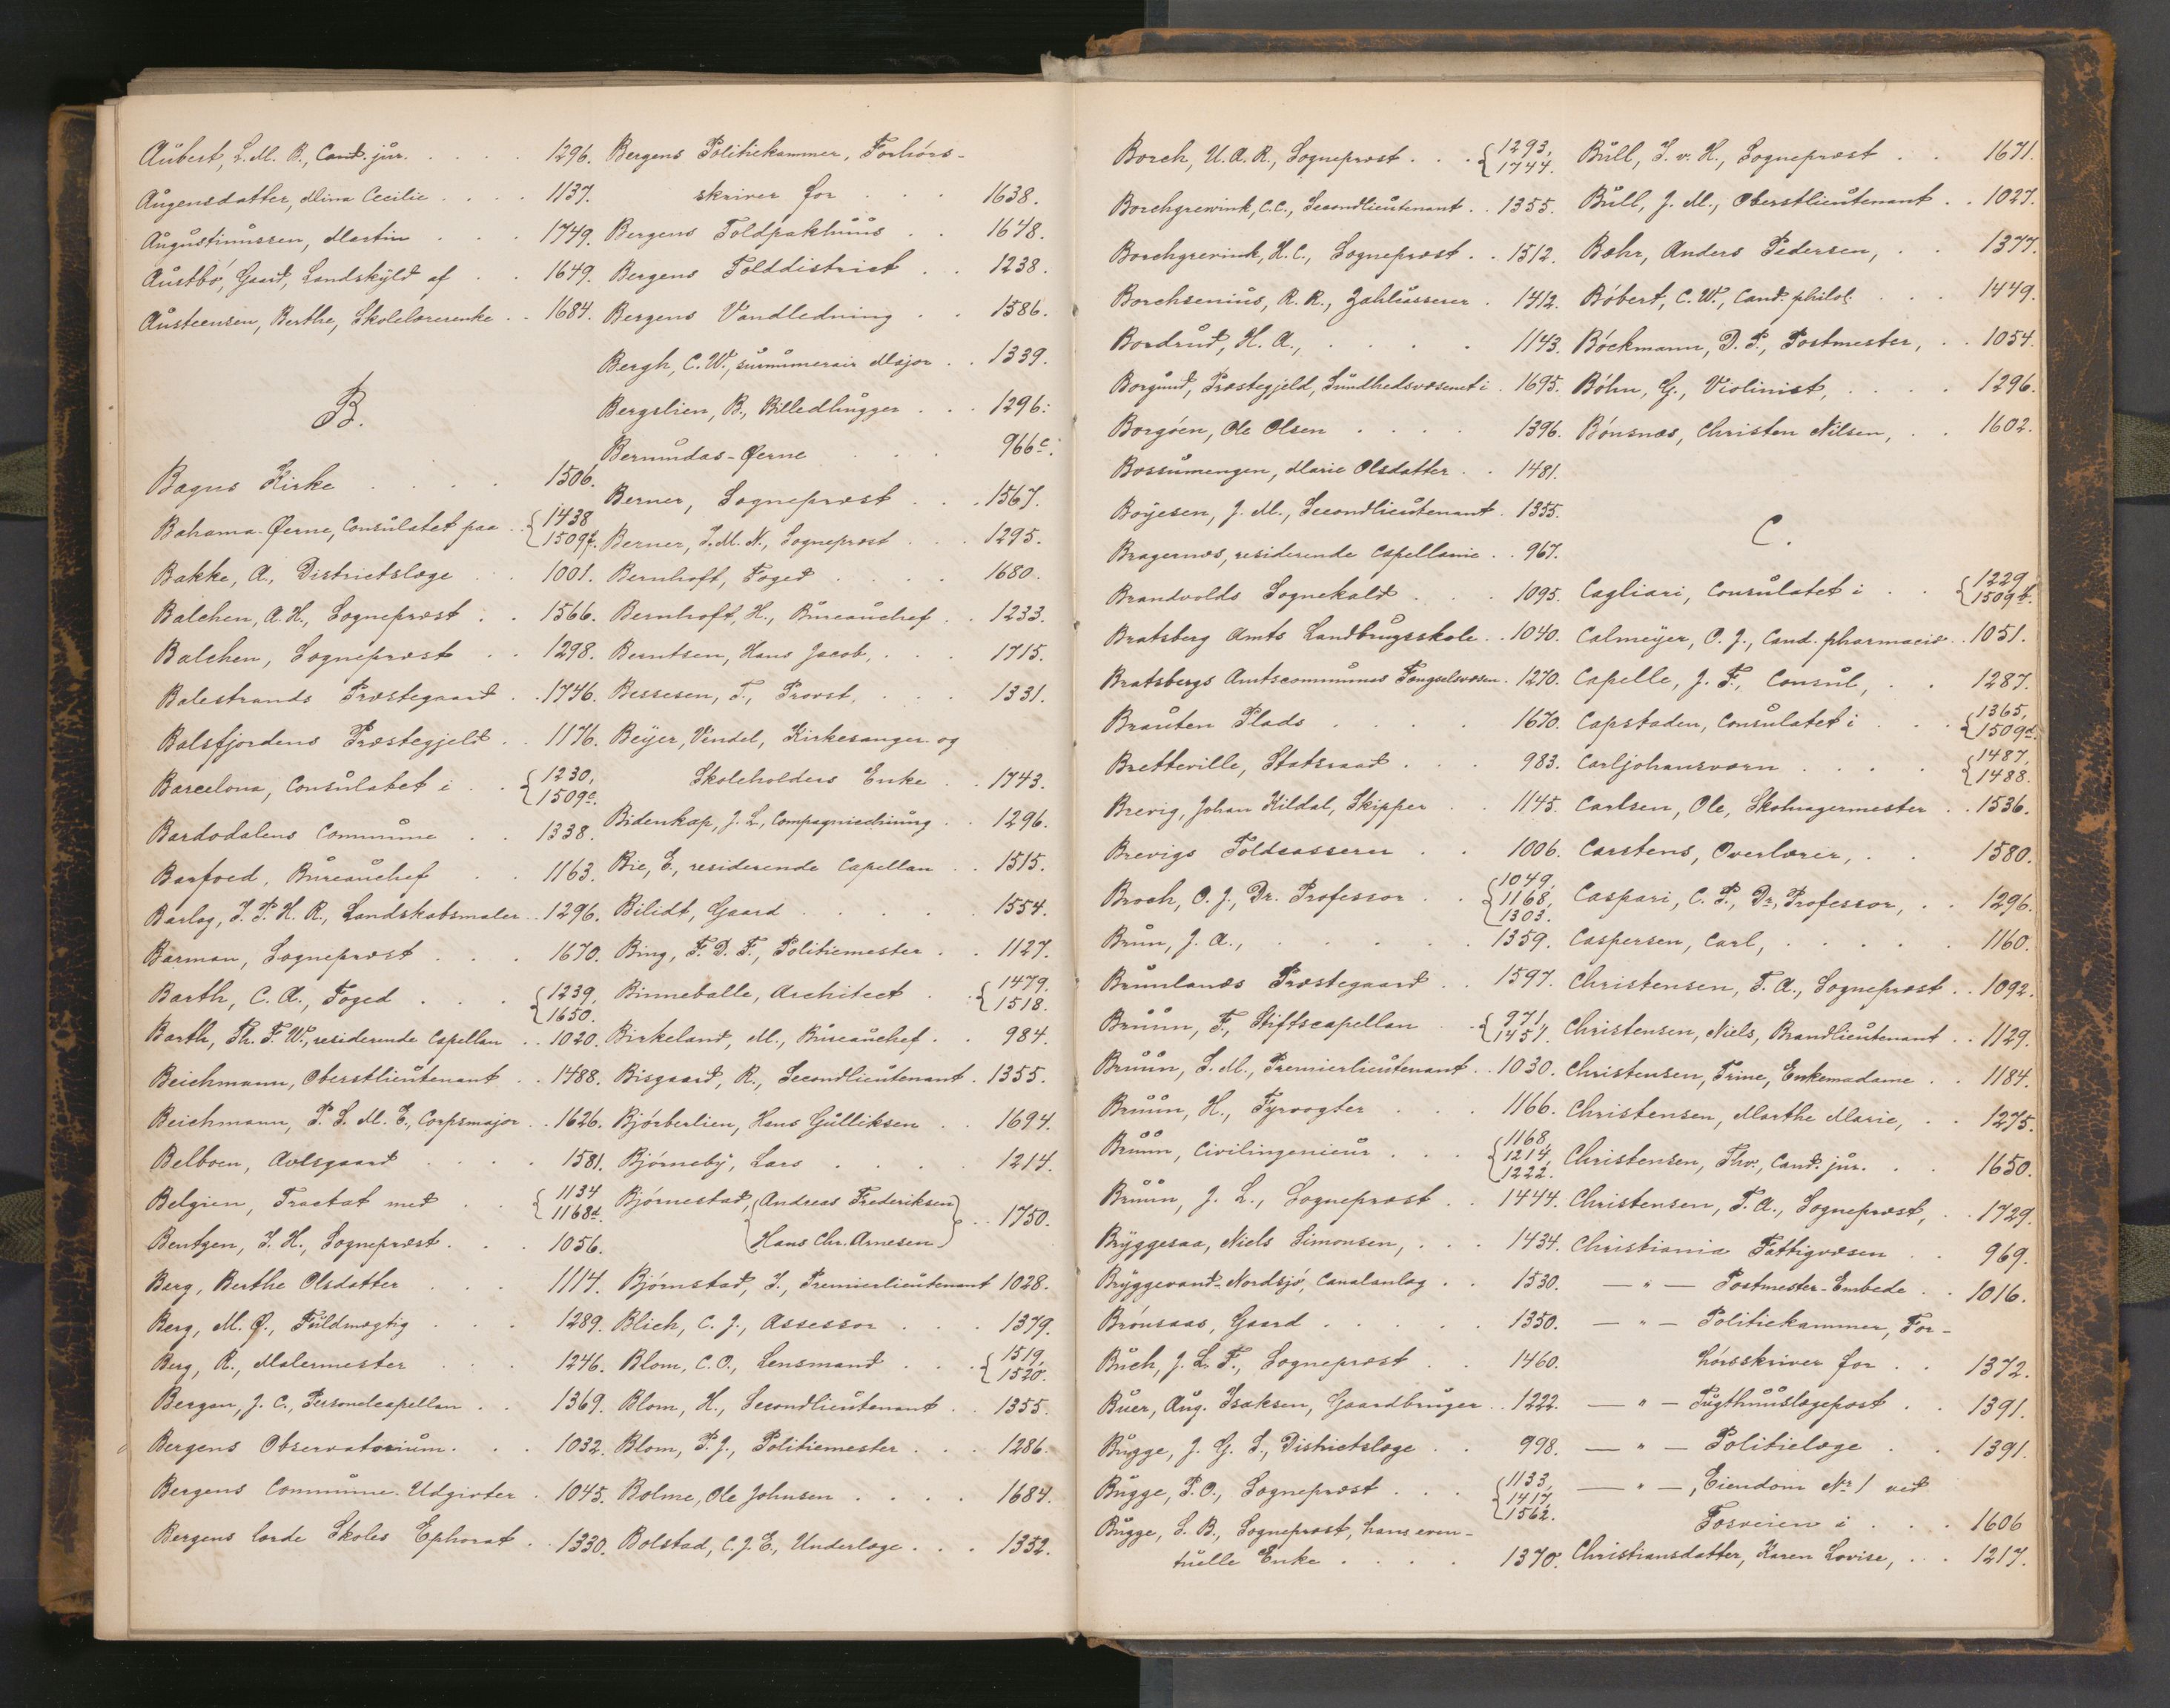 Aubert, L. M. B., Cand. jur. . . . . 1296.
Augensdatter, Mina Cecilie . . . . 1137.
Augustinussen, Martin . . . 1749.
Austbø, Gaard, Landskyld af . . 1649.
Austeensen, Berthe, Skolelærerenke . . 1684.
B.
Bagns Kirke . . . . 1506.
Bahama-Øerne, Consulatet paa . . {1438 1509f.
Bakke, A., Districtslæge . . 1001.
Balchen, A. H., Sogneprest . . 1566.
Balchen, Sogneprest . . 1298.
Balestrands Præstegaard . . 1746.
Balsfjordens Præstegjeld . . 1176.
Barcelona, Consulatet i . . {1230, 1509c.
Bardodalens Commune . . 1338.
Barfoed, Bureauchef . . 1163.
Barlag, J. P. H. R., Landskabsmaler . . 1296.
Barman, Sogneprest . . . 1670.
Barth, C. A., Foged . . . {1239, 1650.
Barth, Th. F. W., residerende Capellan . . 1020.
Beichmann, Oberstlieutenant . . 1488.
Beichmann, P. S. M. E., Corpsmajor . . 1626.
Belboen, Avlsgaard . . . . 1581.
Belgien, Tractat med . . {1134 1168d.
Bentzen, J. H., Sogneprest . . . 1056.
Berg, Berthe Olsdatter . . . 1114.
Berg, M. Ø., Fuldmægtig . . . 1289.
Berg, R., Malermester . . . 1246.
Bergan, J. C., Personelcapellan . . 1369.
Bergens Observatorium . . . 1032.
Bergens Commune-Udgivter . 1045.
Bergens lærde Skoles Ephorat . . 1330.
Bergens Politiekammer, Forhørs-
skriver for . . . 1638.
Bergens Toldpakhuus . . 1648.
Bergens Tolddistrict . . 1238.
Bergens Vandledning . . 1586.
Bergh, C. W., surnumerair Major . . 1339.
Bergslien, B., Billedhugger . . . 1296.
Bermudas-Øerne . . . 966c.
Berner, Sogneprest . . . 1567.
Berner, J. M. N., Sogneprest . . . 1295.
Bernhoft, Foged . . . . 1680.
Bernhoft, H., Bureauchef . . 1233.
Berntsen, Hans Jacob, . . . 1715.
Bessesen, T., Provst, . . . 1331.
Beyer, Vindel, Kirkesanger og
Skoleholders Enke . . 1743.
Bidenkap, J. L., Compagniechirurg . . 1296.
Bie, E., residerende Capellan . . 1515.
Bilidt, Gaard . . . . . 1554.
Bing, F. D. F., Politiemester . . 1127.
Binneballe, Architect . . {1479. 1518.
Birkeland, M., Bureauchef . . 984.
Bisgaard, R., Secondlieutenant . 1355.
Bjørberlien, Hans Gulliksen . . 1694.
Bjørneby, Lars . . . . . 1214.
Bjørnestad, {Andreas Frederiksen} . . 1750.
{Hans Chr. Arnesen}
Bjørnstad, J., Premierlieutenant 1028.
Blich, C. J., Assessor . . 1379.
Blom, C. O., Lensmand . . . {1519, 1520.
Blom, H., Secondlieutenant . . 1355.
Blom, P. J., Politiemester . . . 1286.
Bolme, Ole Johnsen . . . . 1684.
Bolstad, C. J. E., Underlæge . . . 1352.
Borch, U. A. R., Sogneprest . . . {1293, 1744.
Borchgrewink, C. C., Secondlieutenant . . 1355.
Borchgrevink, H. C., Sogneprest . . 1512.
Borchsenius, R. R., Zahlcasserer . 1412.
Bordrud, H. A., . . . . 1143.
Borgund, Præstegjeld, Sundhedsvæsenet i . 1695.
Borgøen, Ole Olsen . . . . 1396.
Bossumengen, Marie Olsdatter . . 1481.
Boyesen, J. M., Secondlieutenant . 1355.
Bragernæs, residerende Capellanie . . 967.
Brandvolds Sognekald . . . 1095.
Bratsberg Amts Landbrugsskole . . 1040.
Bratsbergs Amtscommunes Fængselsvæsen . 1270.
Brauten Plads . . . . 1670.
Bretteville, Statsraad . . . 983.
Brevig, Johan Kildal, Skipper . . 1145.
Brevigs Toldcasserer . . 1006.
Broch, O. J., Dr. Professor . . {1049, 1168, 1303.
Brun, J. A., . . . . . . 1359.
Brunlanæs Præstegaard . . 1597.
Bruun, F., Stiftscapellan . . {971, 1457.
Bruun, S. M., Premierlieutenant . . 1030.
Bruun, H., Fyrvogter . . . 1166.
Bruun, Civilingenieur . . . {1168, 1214, 1222.
Bruun, J. L., Sogneprest . . 1444.
Bryggesaa, Niels Simonsen, . . . 1434.
Bryggevand-Nordsjø, Canalanlæg . . 1530.
Brønsaas, Gaard . . . . . 1350.
Buch, J. L. F., Sogneprest . . 1460.
Buer, Aug. Isaksen, Gaardbruger . . 1222.
Bugge, J. G. S., Districtslæge . . 998.
Bugge, P. O., Sogneprest . . . {1133, 1417, 1562.
Bugge, S. B., Sogneprest, hans even-
tuelle Enke . . . . 1370.
Bull, J. v. H., Sogneprest . . 1671.
Bull, J. M., Oberstlieutenant . . 1027.
Bæhr, Anders Pedersen, . . 1377.
Bøbert, C. W., Cand. philol. . . . 1449.
Bøckmann, D. P., Postmester, . . 1054.
Bøhn, G., Violinist, . . . . 1296.
Bønsnæs, Christen Nilsen, . . 1602.
C.
Cagliari, Consulatet i . . {1229 1509f.
Calmeyer, O. J., Cand. pharmaciæ . . 1051.
Capelle, J. F., Consul, . . 1287.
Capstaden, Consulatet i . . . {1365, 1509d.
Carljohansværn . . . . {1487, 1488.
Carlsen, Ole, Skomagermester . . 1536.
Carstens, Overlærer, . . 1580.
Caspari, C. P., Dr., Professor, . . 1296.
Caspersen, Carl, . . . . . 1160.
Christensen, T. A., Sogneprest . . 1092.
Christensen, Niels, Brandlieutenant . . 1129.
Christensen, Trine, Enkemadame . . 1184.
Christensen, Marthe Marie, . . 1275.
Christensen, Thv., Cand. jur. . . 1650.
Christensen, T. A., Sogneprest, . . 1729.
Christiania Fattigvæsen . . 969.
— " — Postmester-Embede . . 1016.
— " — Politiekammer, For-
hørsskriver for . . 1372.
— " — Tugthuuslægepost . . 1391.
— " — Politielæge . . 1391.
— " — , Eiendom No 1 ved
Fosveien i . . . 1606
Christiansdatter, Karen Lovise, . . . 1217.